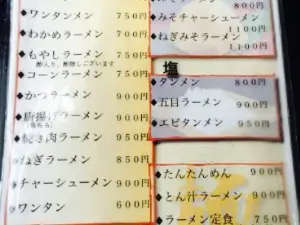 ワンタンメン 750円
わかめラーメン 700円
もやしラーメン 750円
コーンラーメン 750円
かつラーメン 900円
唐揚げラーメン 900円
焼き肉ラーメン 950円
ねぎラーメン 850円
チャーシューメン 900円
ワンタン 600円
800円
みそチャーシューメン
1100円
ねぎみそラーメン
1100円
塩
タンメン 800円
五目ラーメン 900円
エビタンメン 950円
たんたんめん 900円
とん汁ラーメン 900円
ラーメン定食 750円